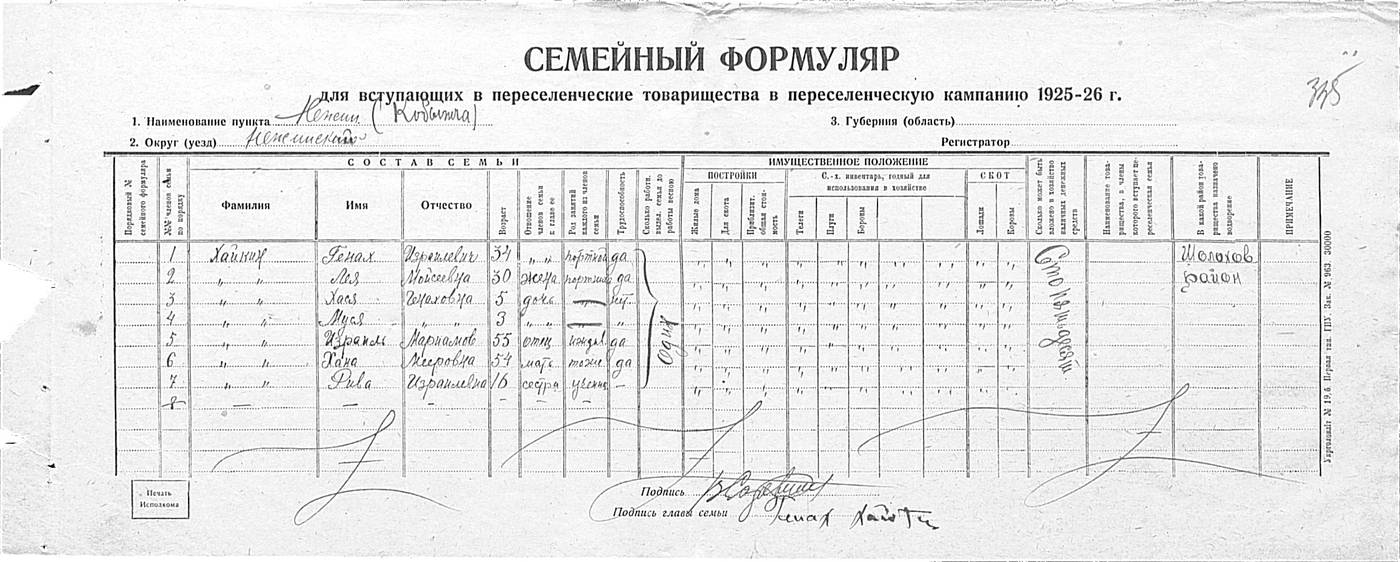 СЕМЕЙНЫЙ ФОРМУЛЯР
для вступающих в переселенческие товарищества в переселенческую кампанию 1925-26 г.
325
1. Наименование пункта Нежин (Кобыжча)
3. Губерния (область)
2. Округ (уезд) Нежинский
Регистратор
СОСТАВ СЕМЬИ
ИМУЩЕСТВЕННОЕ ПОЛОЖЕНИЕ
Порядковый № семейного формуляра
№№ членов семьи по порядку
Фамилия
Имя
Отчество
Возраст
Отношение членов семьи к главе ее
Род занятий каждого из членов семьи
Трудоспособность
Сколько работн. высел. семья до работы весною
ПОСТРОЙКИ
Жилые дома
Для скота
Приблизит. общая стоимость
С.-х. инвентарь, годный для использования в хозяйстве
Телеги
Плуги
Бороны
СКОТ
Лошади
Коровы
Сколько может быть вложено в хозяйство наличных денежных средств
Наименование товарищества, в члены которого вступает переселенческая семья
В какой район товарищества назначено водворение
ПРИМЕЧАНИЕ
1 Хайкин Генах Израилевич 34 " " портной да
2 " " Лея Мойсеевна 30 жена портних да
3 " " Хася Генаховна 5 дочь — нет
4 " " Муся " " 3 " " — "
5 " " Израиль 55 отец иждив. да
6 " " Хана Мееровна 54 мать тоже да
7 " " Рива Израилевна 16 сестра учениц —
8 — — — — — — —
один
Сто пятьдесят
Шолохов
район
Печать
Исполкома
Подпись
Подпись главы семьи Генах
Укрголовліт № 19.6. Первая тип. ГПУ. Зак. № 963. 30000